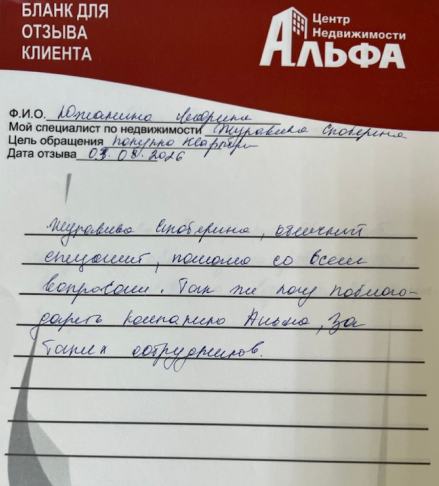 БЛАНК ДЛЯ
ОТЗЫВА
КЛИЕНТА
Центр
Недвижимости
АЛЬФА
Ф.И.О.
Мой специалист по недвижимости Журавлева Екатерина
Цель обращения покупка квартиры
Дата отзыва 03.08.2026
Журавлева Екатерина, отличный
специалист, помогла со всеми
вопросами. Так же хочу поблаго-
дарить компанию Альфа, за
таких сотрудников.